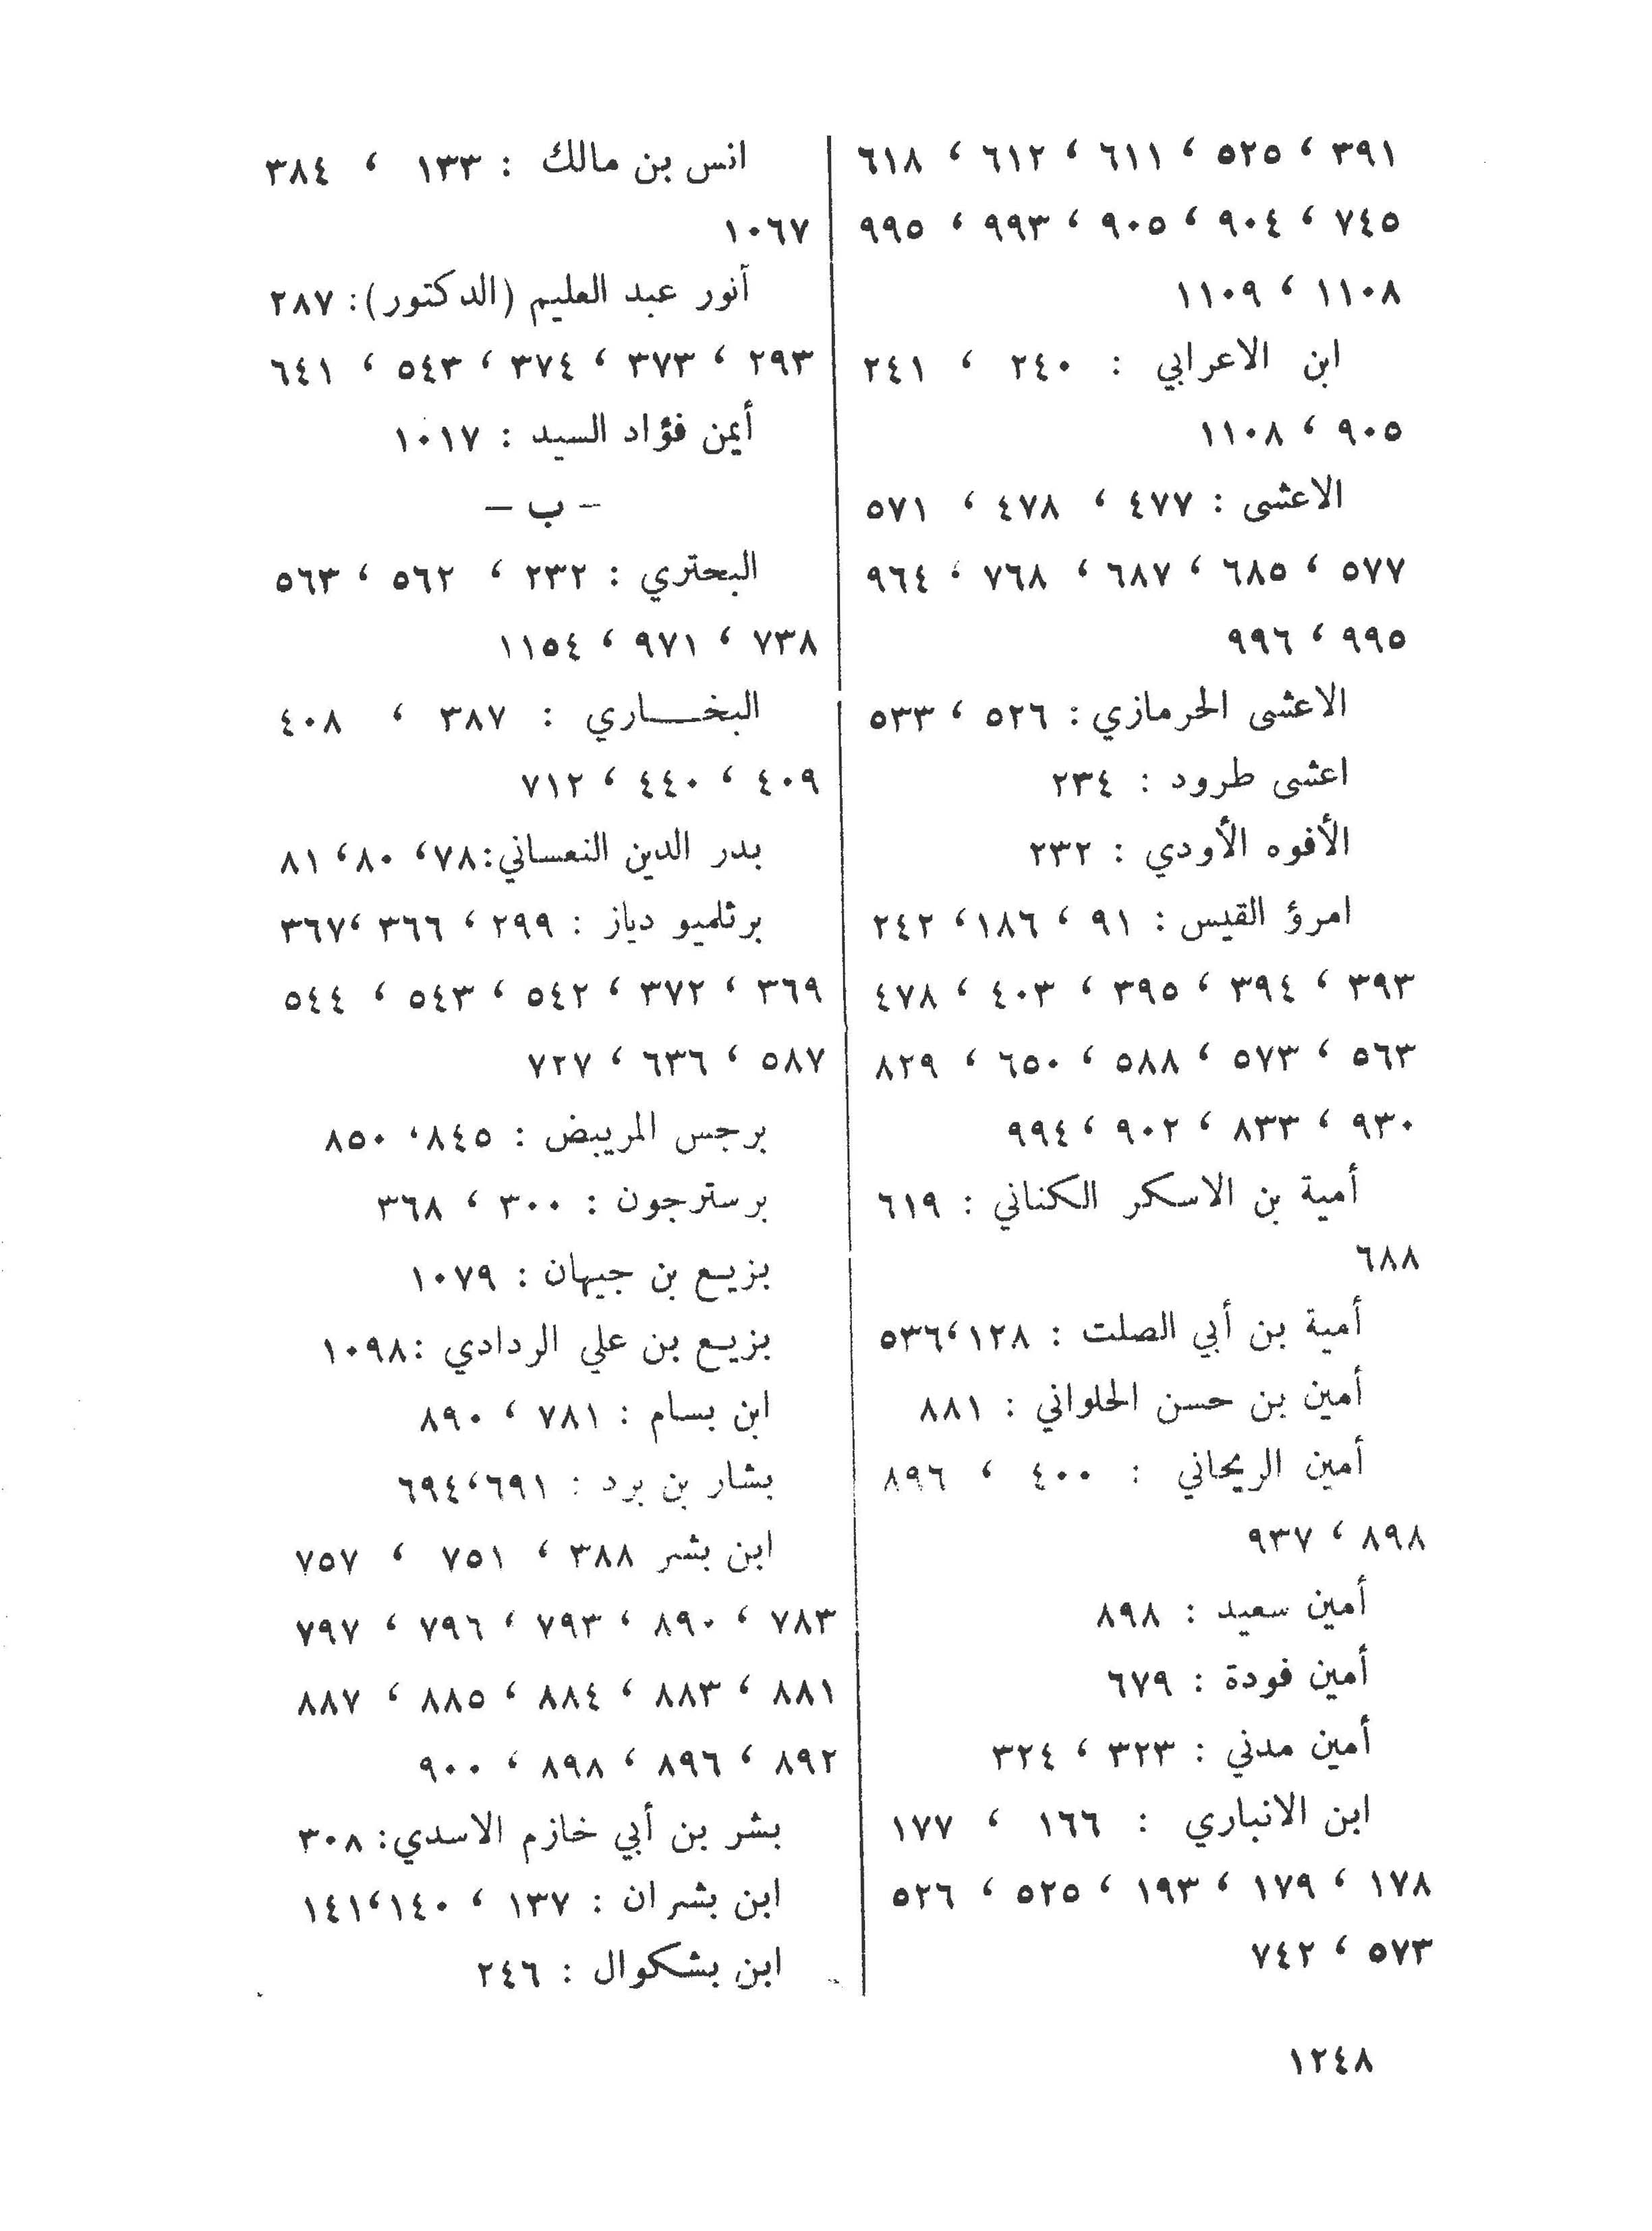 ٣٩١ ، ٥٢٥ ، ٦١١ ، ٦١٢ ، ٦١٨
٧٤٥ ، ٩٠٤ ، ٩٠٥ ، ٩٩٣ ، ٩٩٥
١١٠٨ ، ١١٠٩
ابن الاعرابي : ٢٤٠ ، ٢٤١
٩٠٥ ، ١١٠٨
الاعشى : ٤٧٧ ، ٤٧٨ ، ٥٧١
٥٧٧ ، ٦٨٥ ، ٦٨٧ ، ٧٦٨ ، ٩٦٤
٩٩٥ ، ٩٩٦
الاعشى الحرمازي : ٥٢٦ ، ٥٣٣
اعشى طرود : ٢٣٤
الأفوه الأودي : ٢٣٢
امرؤ القيس : ٩١ ، ١٨٦ ، ٢٤٢
٣٩٣ ، ٣٩٤ ، ٣٩٥ ، ٤٠٣ ، ٤٧٨
٥٦٣ ، ٥٧٣ ، ٥٨٨ ، ٦٥٠ ، ٨٢٩
٩٣٠ ، ٨٣٣ ، ٩٠٢ ، ٩٩٤
أمية بن الاسكر الكناني : ٦١٩
٦٨٨
أمية بن أبي الصلت : ١٢٨ ، ٥٣٦
أمين بن حسن الحلواني : ٨٨١
أمين الريحاني : ٤٠٠ ، ٨٩٦
٨٩٨ ، ٩٣٧
أمين سعيد : ٨٩٨
أمين فودة : ٦٧٩
أمين مدني : ٣٢٣ ، ٣٢٤
ابن الانباري : ١٦٦ ، ١٧٧
١٧٨ ، ١٧٩ ، ١٩٣ ، ٥٢٥ ، ٥٢٦
٥٧٣ ، ٧٤٢
انس بن مالك : ١٣٣ ، ٣٨٤
١٠٦٧
أنور عبد العليم (الدكتور): ٢٨٧
٢٩٣ ، ٣٧٣ ، ٣٧٤ ، ٥٤٣ ، ٦٤١
أيمن فؤاد السيد : ١٠١٧
- ب -
البحتري : ٢٣٢ ، ٥٦٢ ، ٥٦٣
٧٣٨ ، ٩٧١ ، ١١٥٤
البخــاري : ٣٨٧ ، ٤٠٨
٤٠٩ ، ٤٤٠ ، ٧١٢
بدر الدين النعساني: ٧٨ ، ٨٠ ، ٨١
برثلميو دياز : ٢٩٩ ، ٣٦٦ ، ٣٦٧
٣٦٩ ، ٣٧٢ ، ٥٤٢ ، ٥٤٣ ، ٥٤٤
٥٨٧ ، ٦٣٦ ، ٧٢٧
برجس المريبض : ٨٤٥ ، ٨٥٠
برسترجون : ٣٠٠ ، ٣٦٨
بزيع بن جيهان : ١٠٧٩
بزيع بن علي الردادي : ١٠٩٨
ابن بسام : ٧٨١ ، ٨٩٠
بشار بن برد : ٦٩١ ، ٦٩٤
ابن بشر ٣٨٨ ، ٧٥١ ، ٧٥٧
٧٨٣ ، ٨٩٠ ، ٧٩٣ ، ٧٩٦ ، ٧٩٧
٨٨١ ، ٨٨٣ ، ٨٨٤ ، ٨٨٥ ، ٨٨٧
٨٩٢ ، ٨٩٦ ، ٨٩٨ ، ٩٠٠
بشر بن أبي خازم الاسدي: ٣٠٨
ابن بشران : ١٣٧ ، ١٤٠ ، ١٤١
ابن بشكوال : ٢٤٦
١٢٤٨